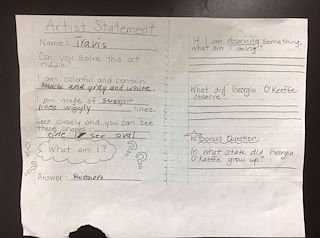 Artist Statement
Name: Travis
Can you solve this art
riddle?
I am colorful and contain
black and gray and white.
I am made of straight
lines wiggly lines.
Look closely and you can see
these shapes:
see oval
What am I?
? ? ?
Answer:
If I am observing something,
what am I doing?
What did Georgia O'Keeffe
observe?
Bonus Question:
In what state did Georgia
O'Keeffe grow up?